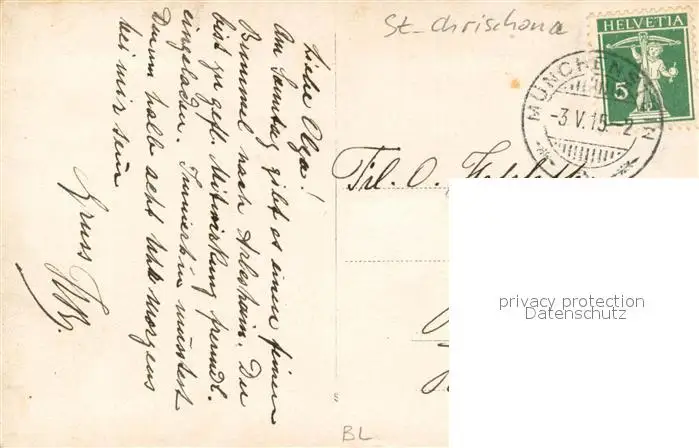 St. Chrischona
HELVETIA
5
MÜNCHENSTEIN
-3.V.15.-2
Liebe Olga!
Am Samstag gibt es einen feinen
Bummel nach Arlesheim. Du
bist zu gefl. Mitwirkung freundl.
eingeladen. Immerhin müsstest
Du um halb acht Uhr morgens
bei mir sein
Gruss
Frl. O.
privacy protection
Datenschutz
BL